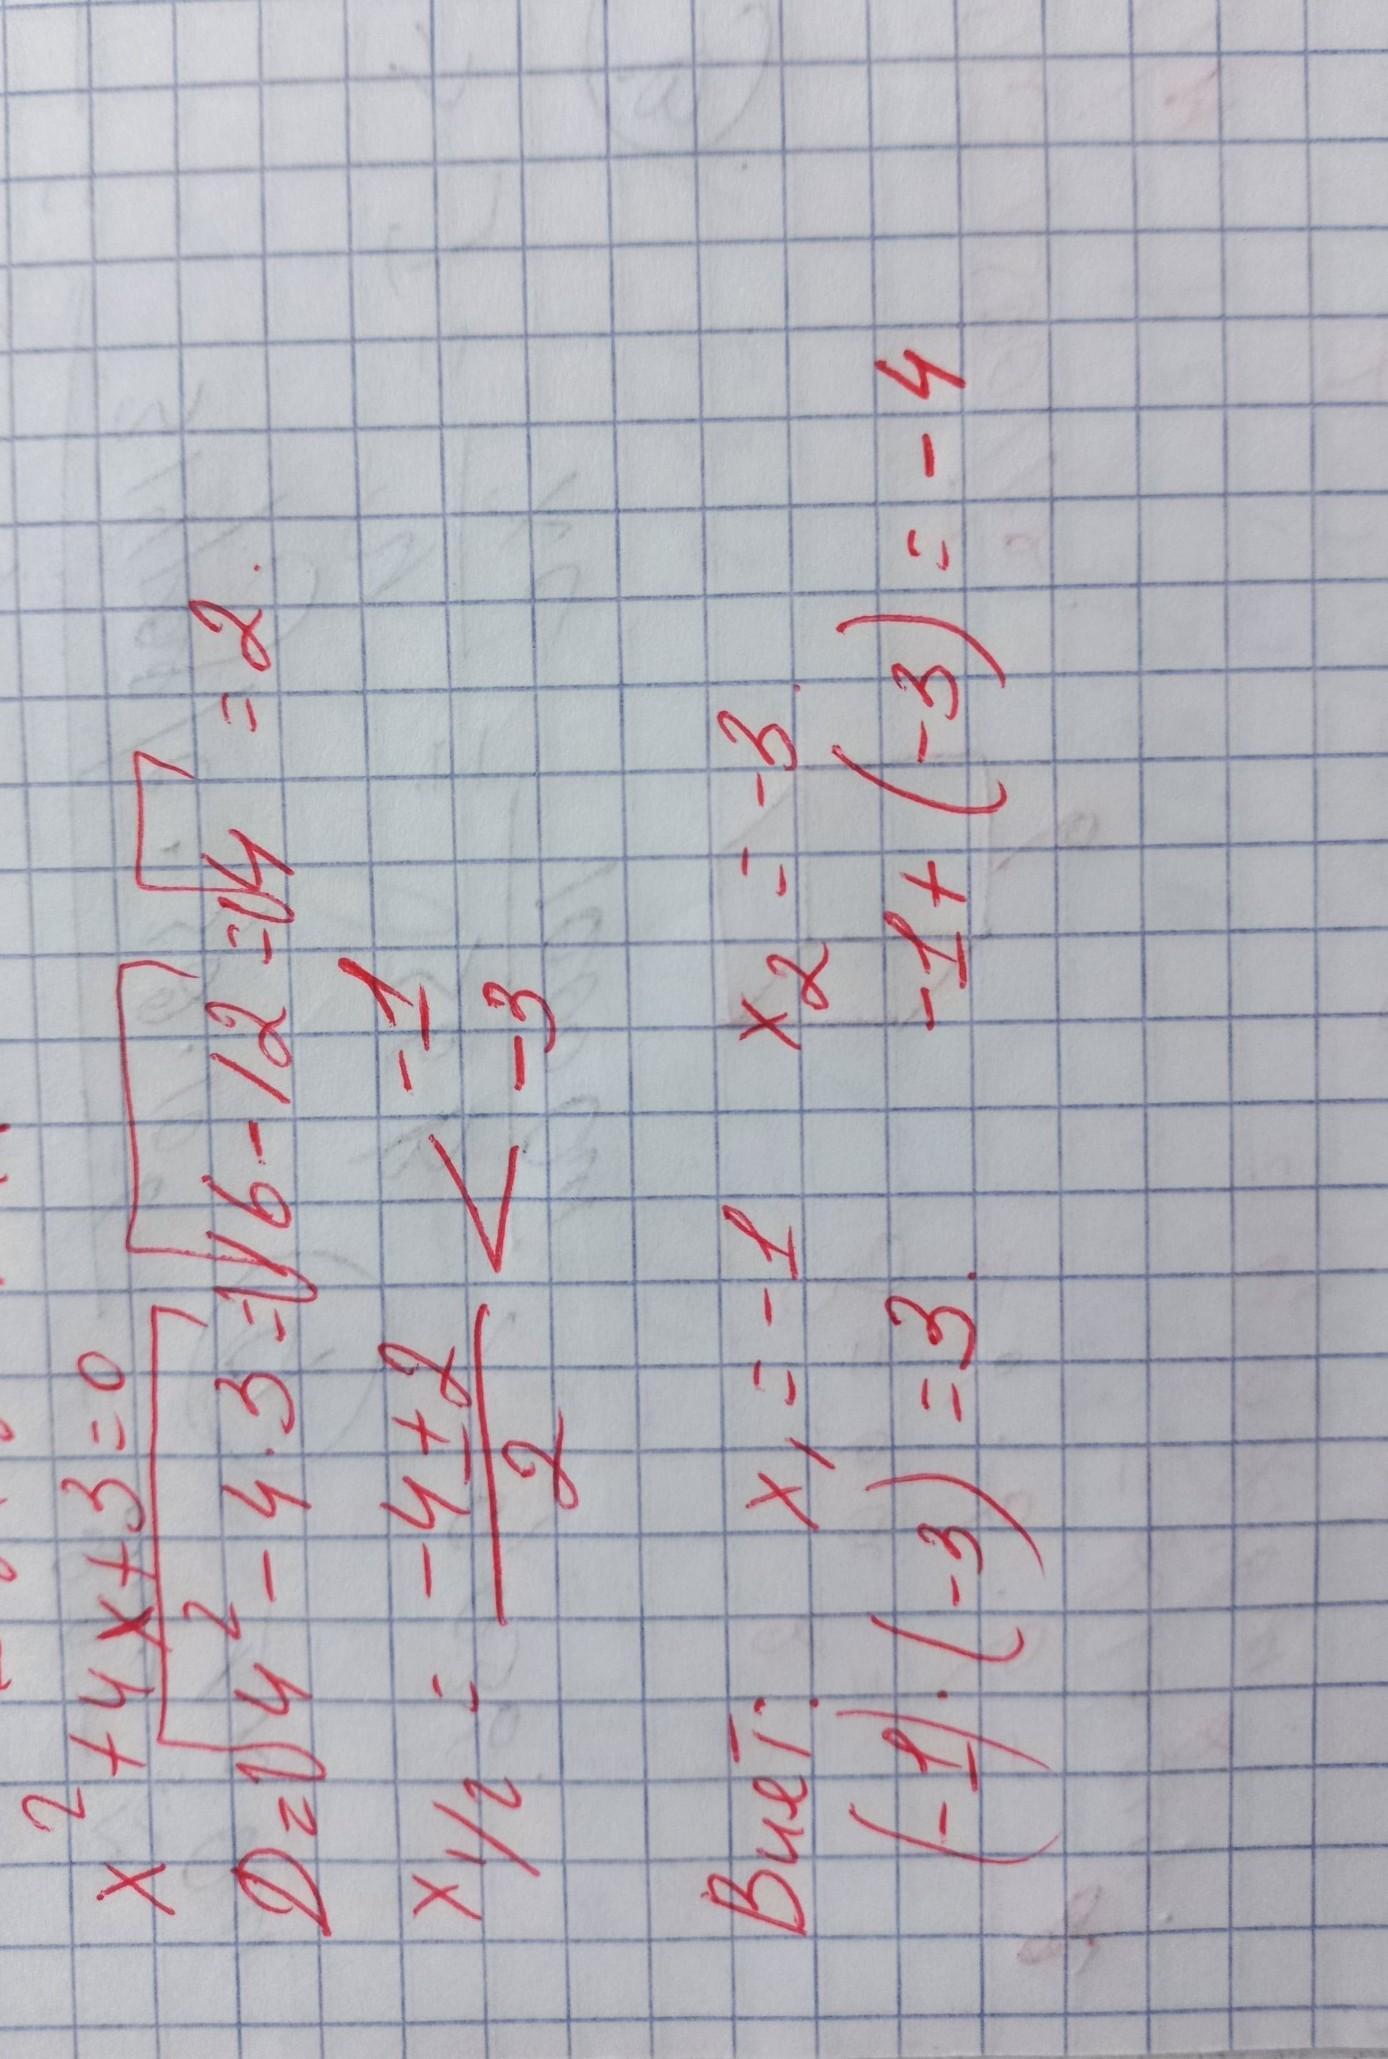 x² + 4x + 3 = 0
D = √4² - 4 · 3 = √16 - 12 = √4 = 2.
x1/2 = (-4 ± 2)/2 < -1 -3
Виет: x₁ = -1 x₂ = -3.
(-1) · (-3) = 3. -1 + (-3) = -4